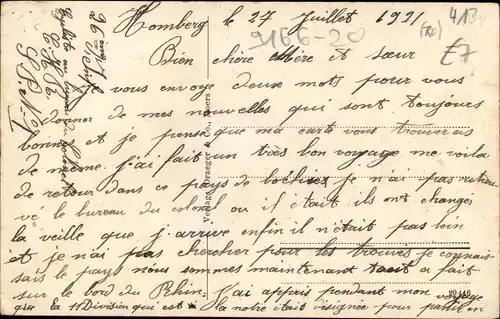 Homberg le 27 Juillet 1921
9166-20
413
£7
Bien chère Mère et sœur
vous envoye deux mots pour vous
donner de mes nouvelles qui sont toujours
bonnes et je pense que ma carte vous trouverais
de meme. j'ai fait un très bon voyage me voila
de retour dans ce pays de boches je n'ai pas retrou
vé le bureau du colonel ou il était ils ont changés
la veille que j'arrive enfin il n'était pas loin
et je n'ai pas chercher pour les trouves je connais
sais le pays nous sommes maintenant tout a fait
sur le bord du Rhin. J'ai appris pendant mon voyage
que la 11 Division qui est la notre était désignée pour partir en